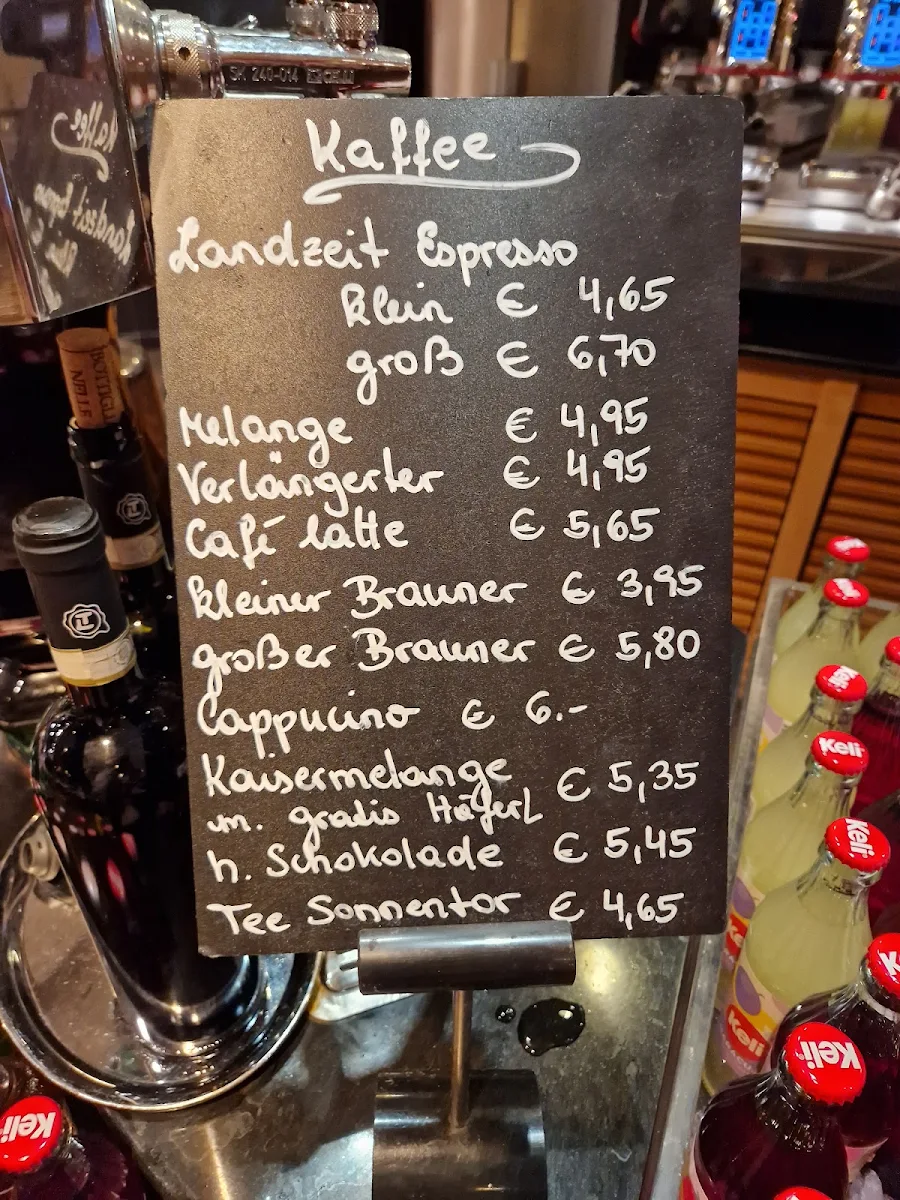 SK 240-014
Kaffee
Landzeit Espresso
klein € 4,65
groß € 6,70
Melange € 4,95
Verlängerter € 4,95
Café latte € 5,65
kleiner Brauner € 3,95
großer Brauner € 5,80
Cappucino € 6.-
Kaisermelange € 5,35
m. gratis Häferl
h. Schokolade € 5,45
Tee Sonnentor € 4,65
Keli
Keli
Keli
Keli
Keli
Keli
Keli